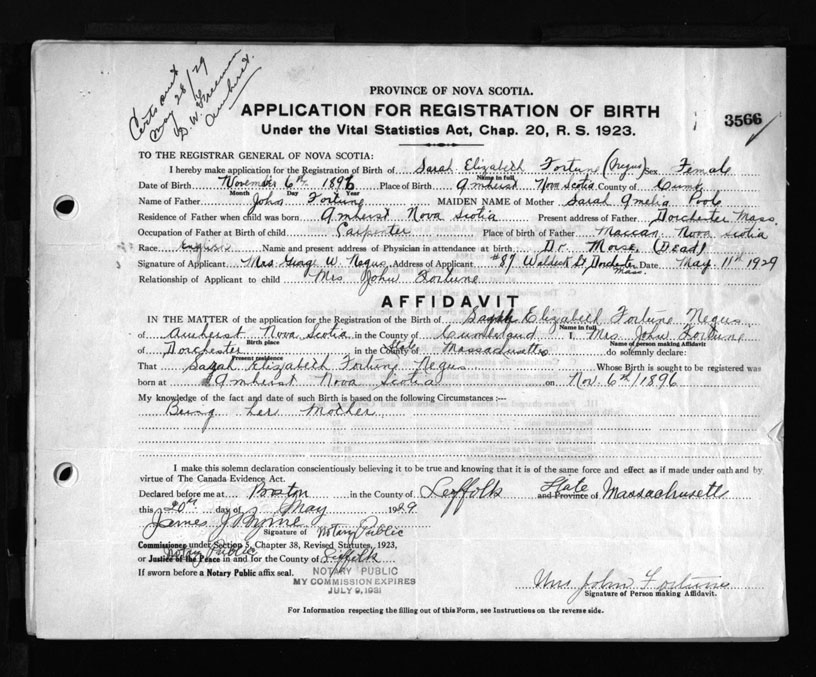 Certs sent
May 28/29
D. W. Freeman
Amherst.
PROVINCE OF NOVA SCOTIA.
APPLICATION FOR REGISTRATION OF BIRTH
3566
Under the Vital Statistics Act, Chap. 20, R. S. 1923.
TO THE REGISTRAR GENERAL OF NOVA SCOTIA:
I hereby make application for the Registration of Birth of Sarah Elizabeth Fortune (Negus) Sex Female
Name in full
Date of Birth November 6th 1896 Place of Birth Amherst Nova Scotia County of Cumb
Month Day Year
Name of Father John Fortune MAIDEN NAME of Mother Sarah Amelia Poole
Residence of Father when child was born Amherst Nova Scotia Present address of Father Dorchester Mass
Occupation of Father at Birth of child Carpenter Place of birth of Father Maccan Nova Scotia
Race English Name and present address of Physician in attendance at birth Dr. Morse (Dead)
Signature of Applicant Mrs George W. Negus Address of Applicant #87 St, Dorchester Mass. Date May 11th 1929
Relationship of Applicant to child Mrs John Fortune
AFFIDAVIT
IN THE MATTER of the application for the Registration of the Birth of Sarah Elizabeth Fortune Negus
Name in full
of Amherst Nova Scotia in the County of Cumberland I, Mrs. John Fortune
Birth place Name of person making Affidavit
of Dorchester in the State Massachusetts do solemnly declare:
Present residence
That Sarah Elizabeth Fortune Negus Whose Birth is sought to be registered was
born at Amherst Nova Scotia on Nov. 6th/1896
My knowledge of the fact and date of such Birth is based on the following Circumstances :—
Being her Mother
I make this solemn declaration conscientiously believing it to be true and knowing that it is of the same force and effect as if made under oath and by
virtue of The Canada Evidence Act.
Declared before me at Boston in the County of Suffolk State and Province of Massachusetts
this 20th day of May 1929
James J.
Signature of Notary Public
Commissioner under Section 5, Chapter 38, Revised Statutes, 1923,
Notary Public
or Justice of the Peace in and for the County of Suffolk
If sworn before a Notary Public affix seal.
NOTARY PUBLIC
MY COMMISSION EXPIRES
JULY 9, 1931
Mrs John Fortune
Signature of Person making Affidavit.
For Information respecting the filling out of this Form, see Instructions on the reverse side.